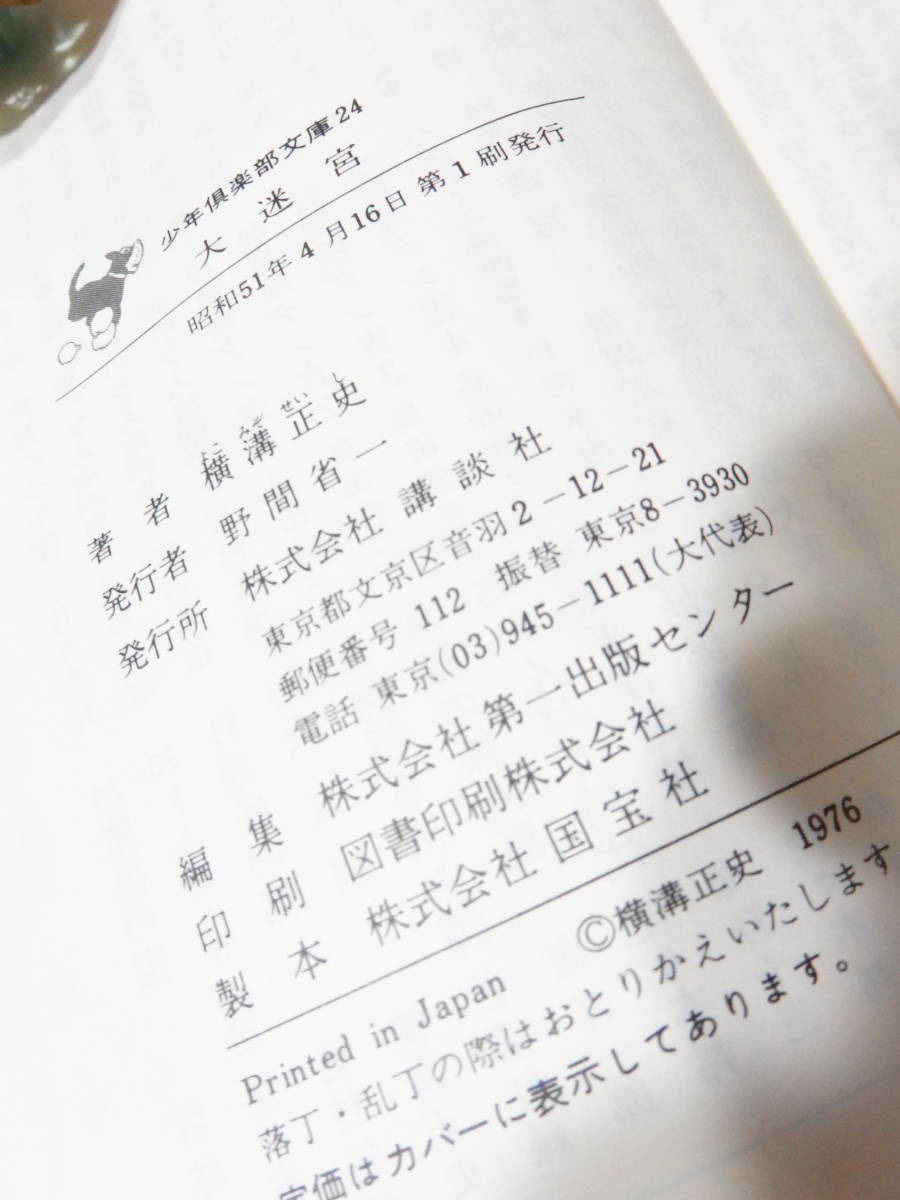 少年倶楽部文庫24
大迷宮
昭和51年4月16日 第1刷発行
著者 横溝正史
よこ みぞ せい し
発行者 野間省一
発行所 株式会社 講談社
東京都文京区音羽2-12-21
郵便番号 112 振替 東京8-3930
電話 東京(03)945-1111(大代表)
編集 株式会社 第一出版センター
印刷 図書印刷株式会社
製本 株式会社 国宝社
©横溝正史 1976
Printed in Japan
落丁・乱丁の際はおとりかえいたします
定価はカバーに表示してあります。